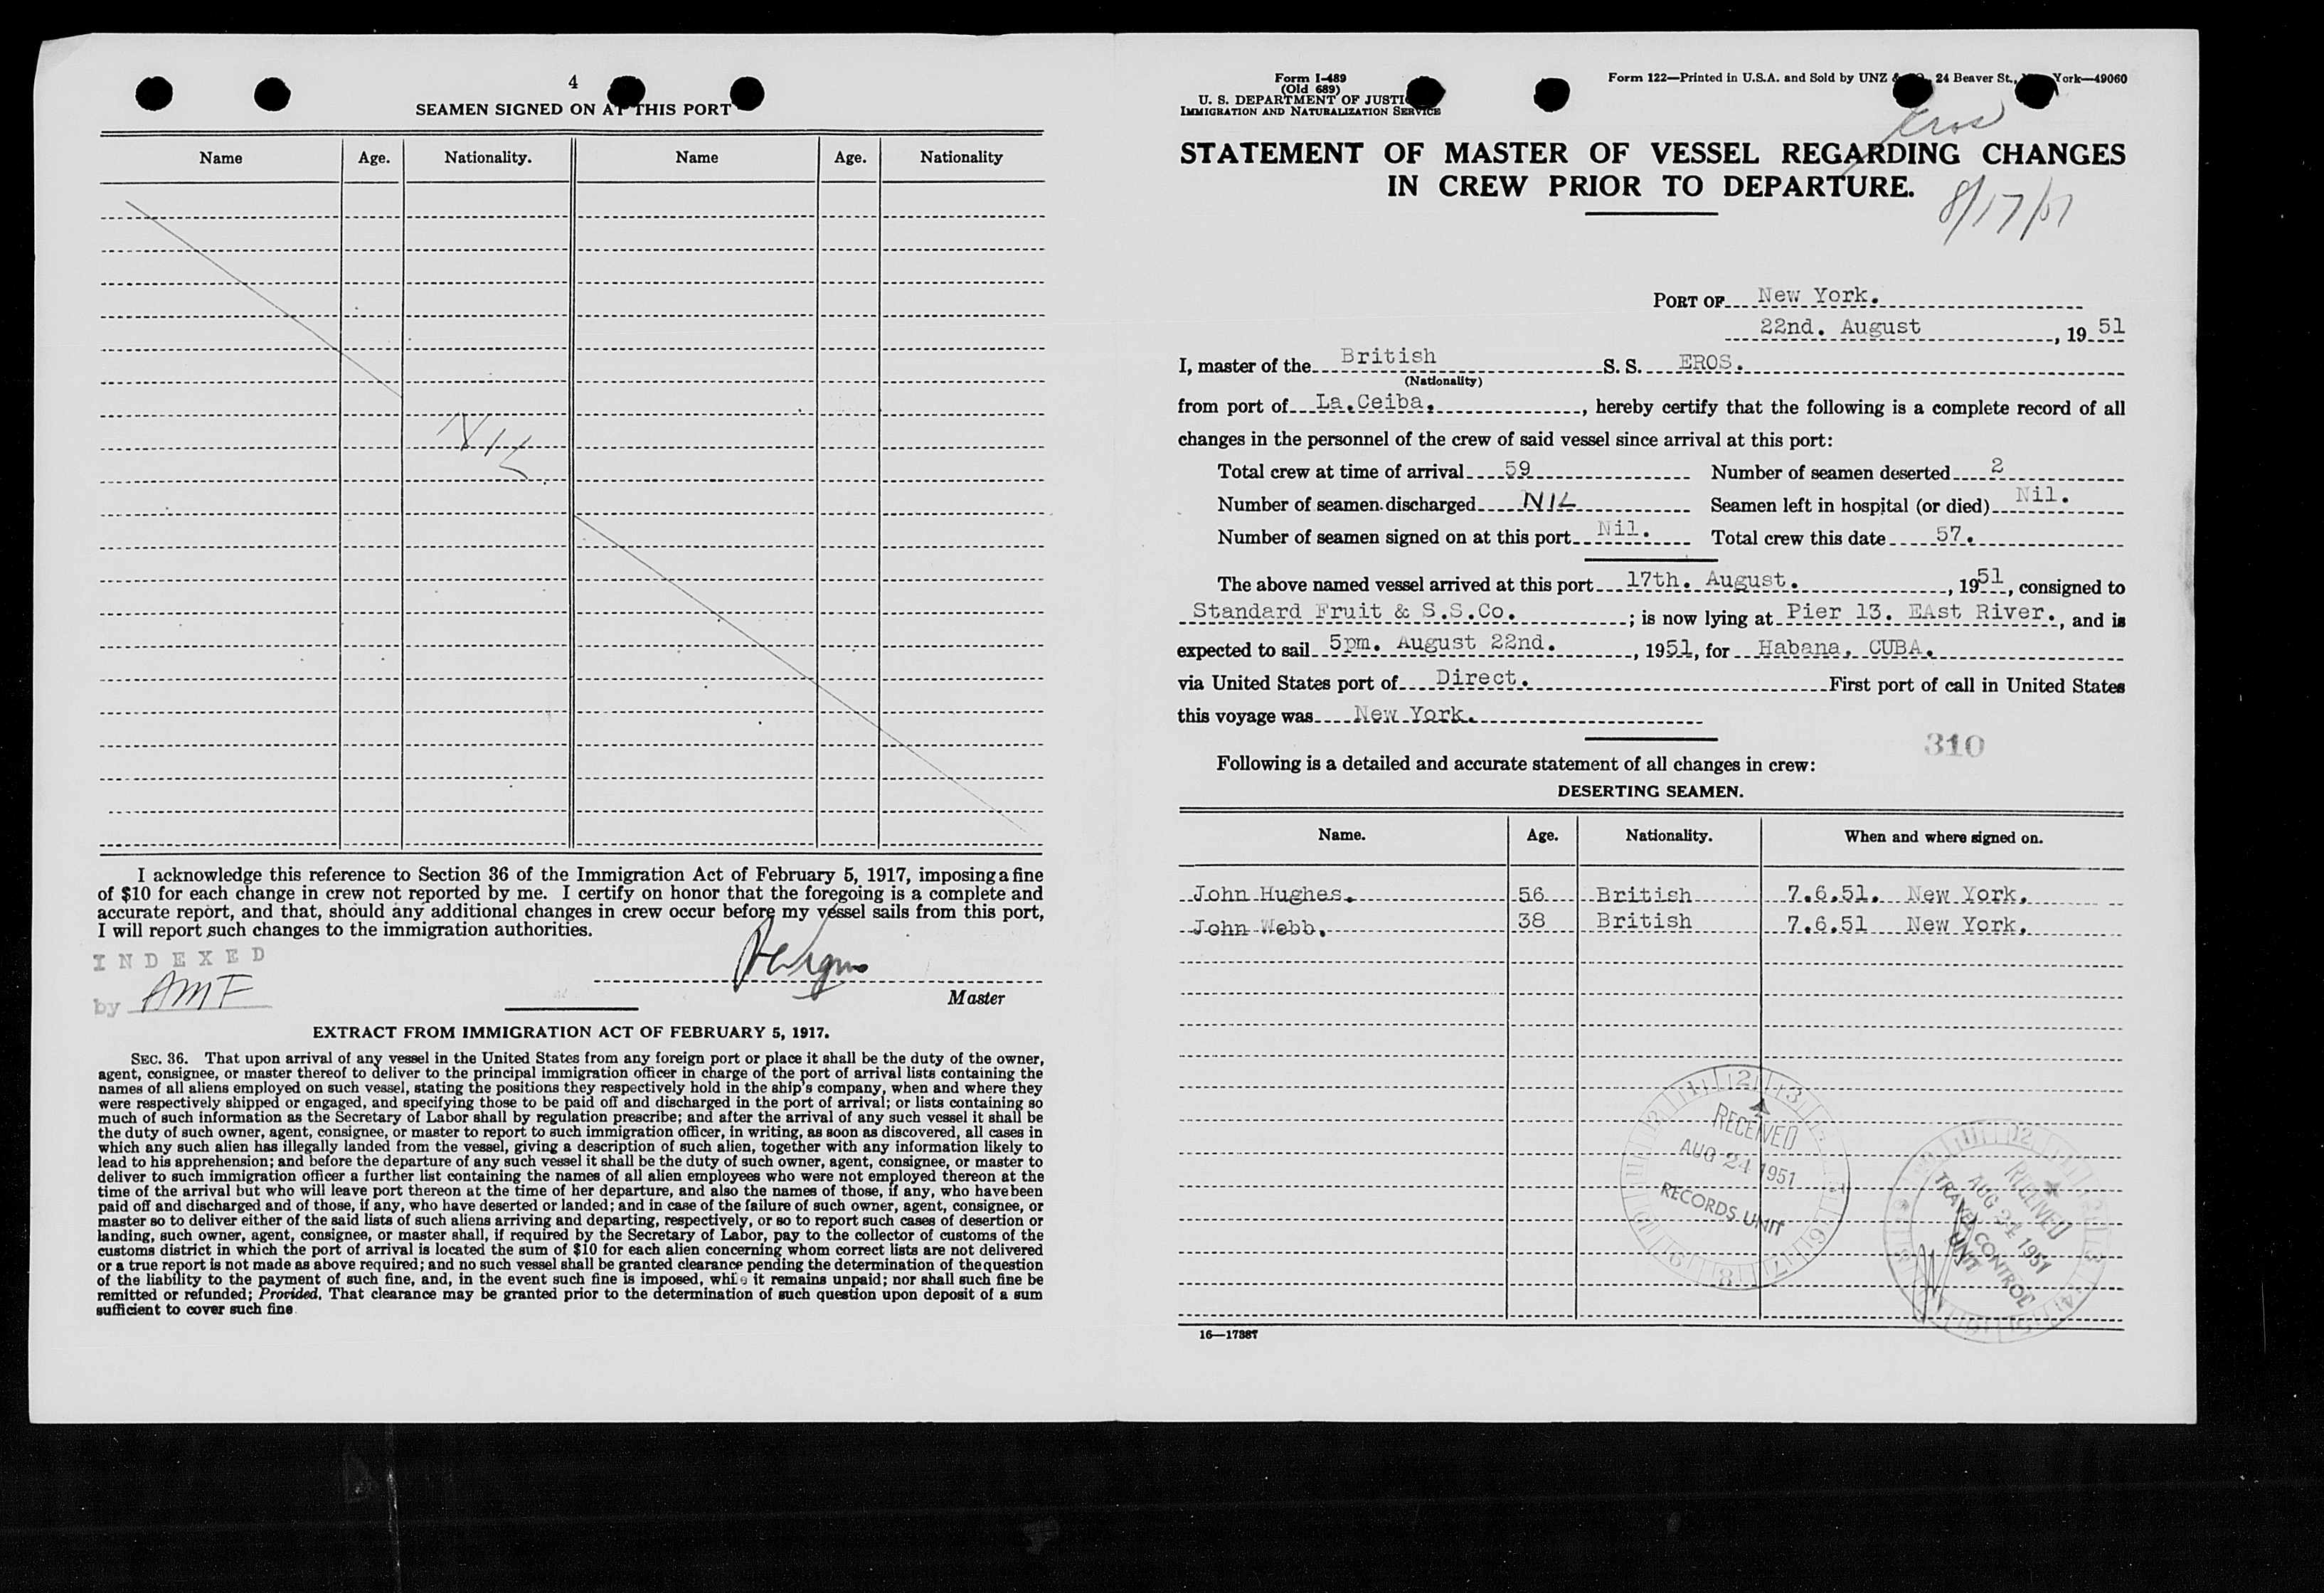 4
SEAMEN SIGNED ON AT THIS PORT
Name Age. Nationality. Name Age. Nationality
NIL
I acknowledge this reference to Section 36 of the Immigration Act of February 5, 1917, imposing a fine
of $10 for each change in crew not reported by me. I certify on honor that the foregoing is a complete and
accurate report, and that, should any additional changes in crew occur before my vessel sails from this port,
I will report such changes to the immigration authorities.
INDEXED
by AMF
Master
EXTRACT FROM IMMIGRATION ACT OF FEBRUARY 5, 1917.
SEC. 36. That upon arrival of any vessel in the United States from any foreign port or place it shall be the duty of the owner,
agent, consignee, or master thereof to deliver to the principal immigration officer in charge of the port of arrival lists containing the
names of all aliens employed on such vessel, stating the positions they respectively hold in the ship's company, when and where they
were respectively shipped or engaged, and specifying those to be paid off and discharged in the port of arrival; or lists containing so
much of such information as the Secretary of Labor shall by regulation prescribe; and after the arrival of any such vessel it shall be
the duty of such owner, agent, consignee, or master to report to such immigration officer, in writing, as soon as discovered, all cases in
which any such alien has illegally landed from the vessel, giving a description of such alien, together with any information likely to
lead to his apprehension; and before the departure of any such vessel it shall be the duty of such owner, agent, consignee, or master to
deliver to such immigration officer a further list containing the names of all alien employees who were not employed thereon at the
time of the arrival but who will leave port thereon at the time of her departure, and also the names of those, if any, who have been
paid off and discharged and of those, if any, who have deserted or landed; and in case of the failure of such owner, agent, consignee, or
master so to deliver either of the said lists of such aliens arriving and departing, respectively, or so to report such cases of desertion or
landing, such owner, agent, consignee, or master shall, if required by the Secretary of Labor, pay to the collector of customs of the
customs district in which the port of arrival is located the sum of $10 for each alien concerning whom correct lists are not delivered
or a true report is not made as above required; and no such vessel shall be granted clearance pending the determination of the question
of the liability to the payment of such fine, and, in the event such fine is imposed, while it remains unpaid; nor shall such fine be
remitted or refunded; Provided, That clearance may be granted prior to the determination of such question upon deposit of a sum
sufficient to cover such fine
Form I-489
(Old 689)
U. S. DEPARTMENT OF JUSTICE
IMMIGRATION AND NATURALIZATION SERVICE
Form 122—Printed in U.S.A. and Sold by UNZ & CO., 24 Beaver St., New York—49060
Eros
STATEMENT OF MASTER OF VESSEL REGARDING CHANGES
IN CREW PRIOR TO DEPARTURE.
8/17/51
PORT OF New York.
22nd. August, 1951
I, master of the British S. S. EROS.
(Nationality)
from port of La.Ceiba., hereby certify that the following is a complete record of all
changes in the personnel of the crew of said vessel since arrival at this port:
Total crew at time of arrival 59 Number of seamen deserted 2
Number of seamen discharged NIL Seamen left in hospital (or died) Nil.
Number of seamen signed on at this port Nil. Total crew this date 57.
The above named vessel arrived at this port 17th. August., 1951, consigned to
Standard Fruit & S.S.Co. ; is now lying at Pier 13. EAst River., and is
expected to sail 5pm. August 22nd., 1951, for Habana, CUBA.
via United States port of Direct. First port of call in United States
this voyage was New York.
310
Following is a detailed and accurate statement of all changes in crew:
DESERTING SEAMEN.
Name. Age. Nationality. When and where signed on.
John Hughes. 56 British 7.6.51. New York.
John Webb. 38 British 7.6.51 New York.
RECEIVED
AUG 24 1951
RECORDS UNIT
RECEIVED
AUG 24 1951
TRAVEL CONTROL
UNIT
16—17387